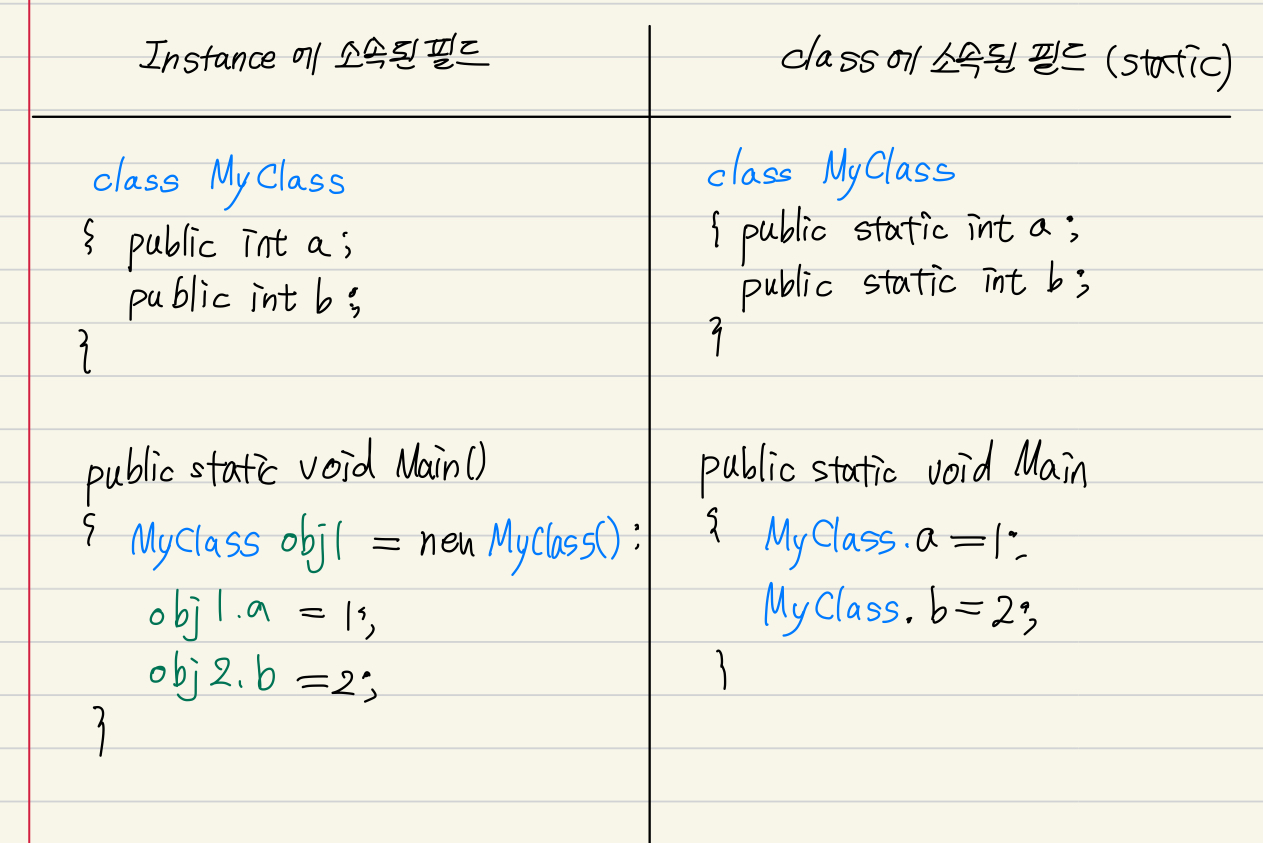 Instance에 소속된 필드
class MyClass
{ public int a;
public int b;
}
public static void Main()
{ MyClass obj1 = new MyClass();
obj1.a = 1;
obj2.b = 2;
}
class에 소속된 필드 (static)
class MyClass
{ public static int a;
public static int b;
}
public static void Main
{ MyClass.a = 1;
MyClass.b = 2;
}